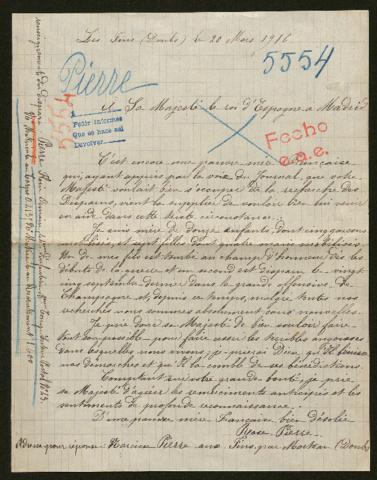 Les Fins (Doubs) le 20 Mars 1916
5554
Pierre
A Sa Majesté le roi d'Espagne à Madrid
Pedir informes
Que se hace así
Devolver
Fecho
5554
C'est encore une pauvre mère française
qui ayant appris par la voix du Journal, que votre
Majesté voulait bien s'occuper de la recherche des
Disparus, vient la supplier de vouloir bien lui venir
en aide dans cette triste circonstance.
Je suis mère de douze enfants dont cinq garçons
mobilisés, et sept filles dont quatre maris mobilisés
Un de mes fils est tombé au champ d'honneur dès les
débuts de la guerre et un second est disparu le vingt
cinq septembre dernier dans la grande offensive de
Champagne et, depuis ce temps, malgré toutes nos
recherches nous sommes absolument sans nouvelles.
Je prie donc sa Majesté de bien vouloir faire
tout son possible pour faire cesser les terribles angoisses
dans lesquelles nous vivons, je prierai Dieu, qu'Il bénisse
vos démarches et qu'Il la comble de ses bénédictions.
Comptant sur votre grande bonté, je prie,
sa Majesté d'agréer les remerciements anticipés et les
sentiments de profonde reconnaissance.
D'une pauvre mère Française bien désolée
Pierre
Adresse pour réponse: Narcisse Pierre aux Fins, par Morteau (Doubs)
renseignements du disparu Pierre